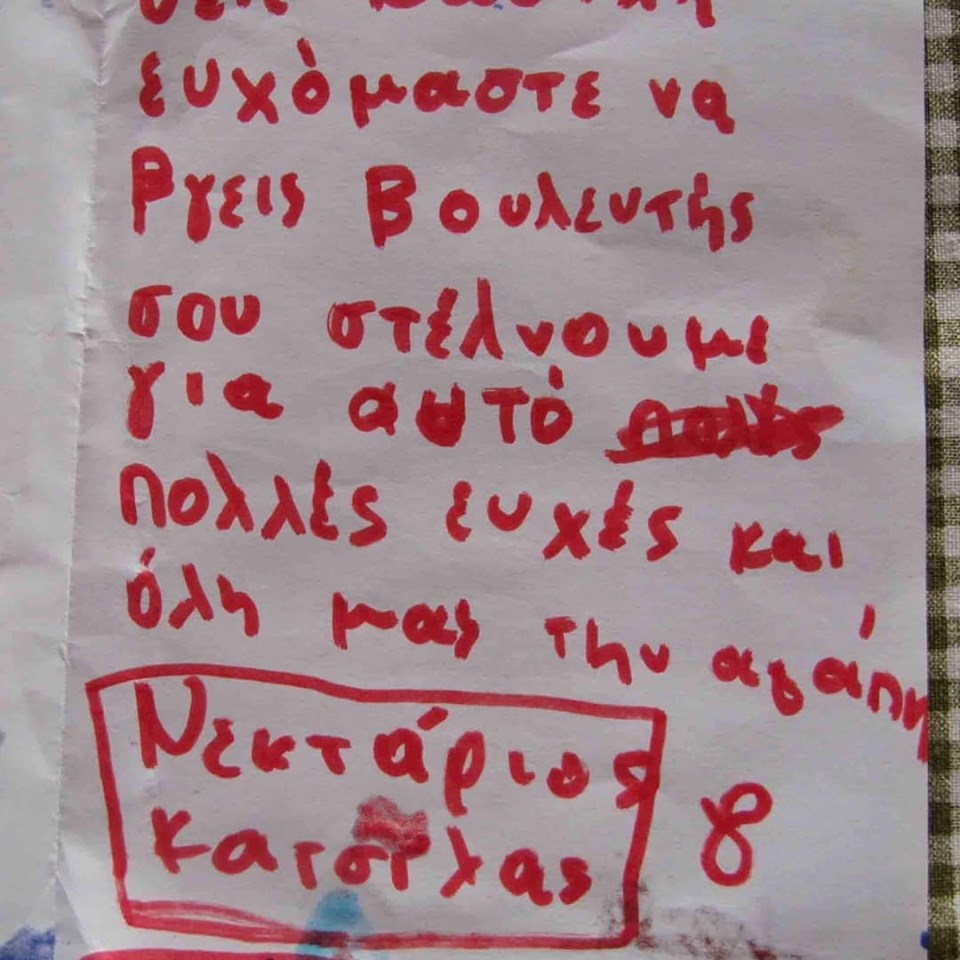 ευχόμαστε να
βγεις Βουλευτής
σου στέλνουμε
για αυτό
πολλές ευχές και
όλη μας την αγάπη
Νεκτάριος 8